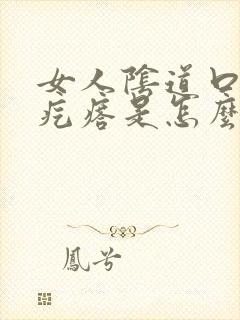 女人陰道口
疙瘩是怎麼
鳳兮